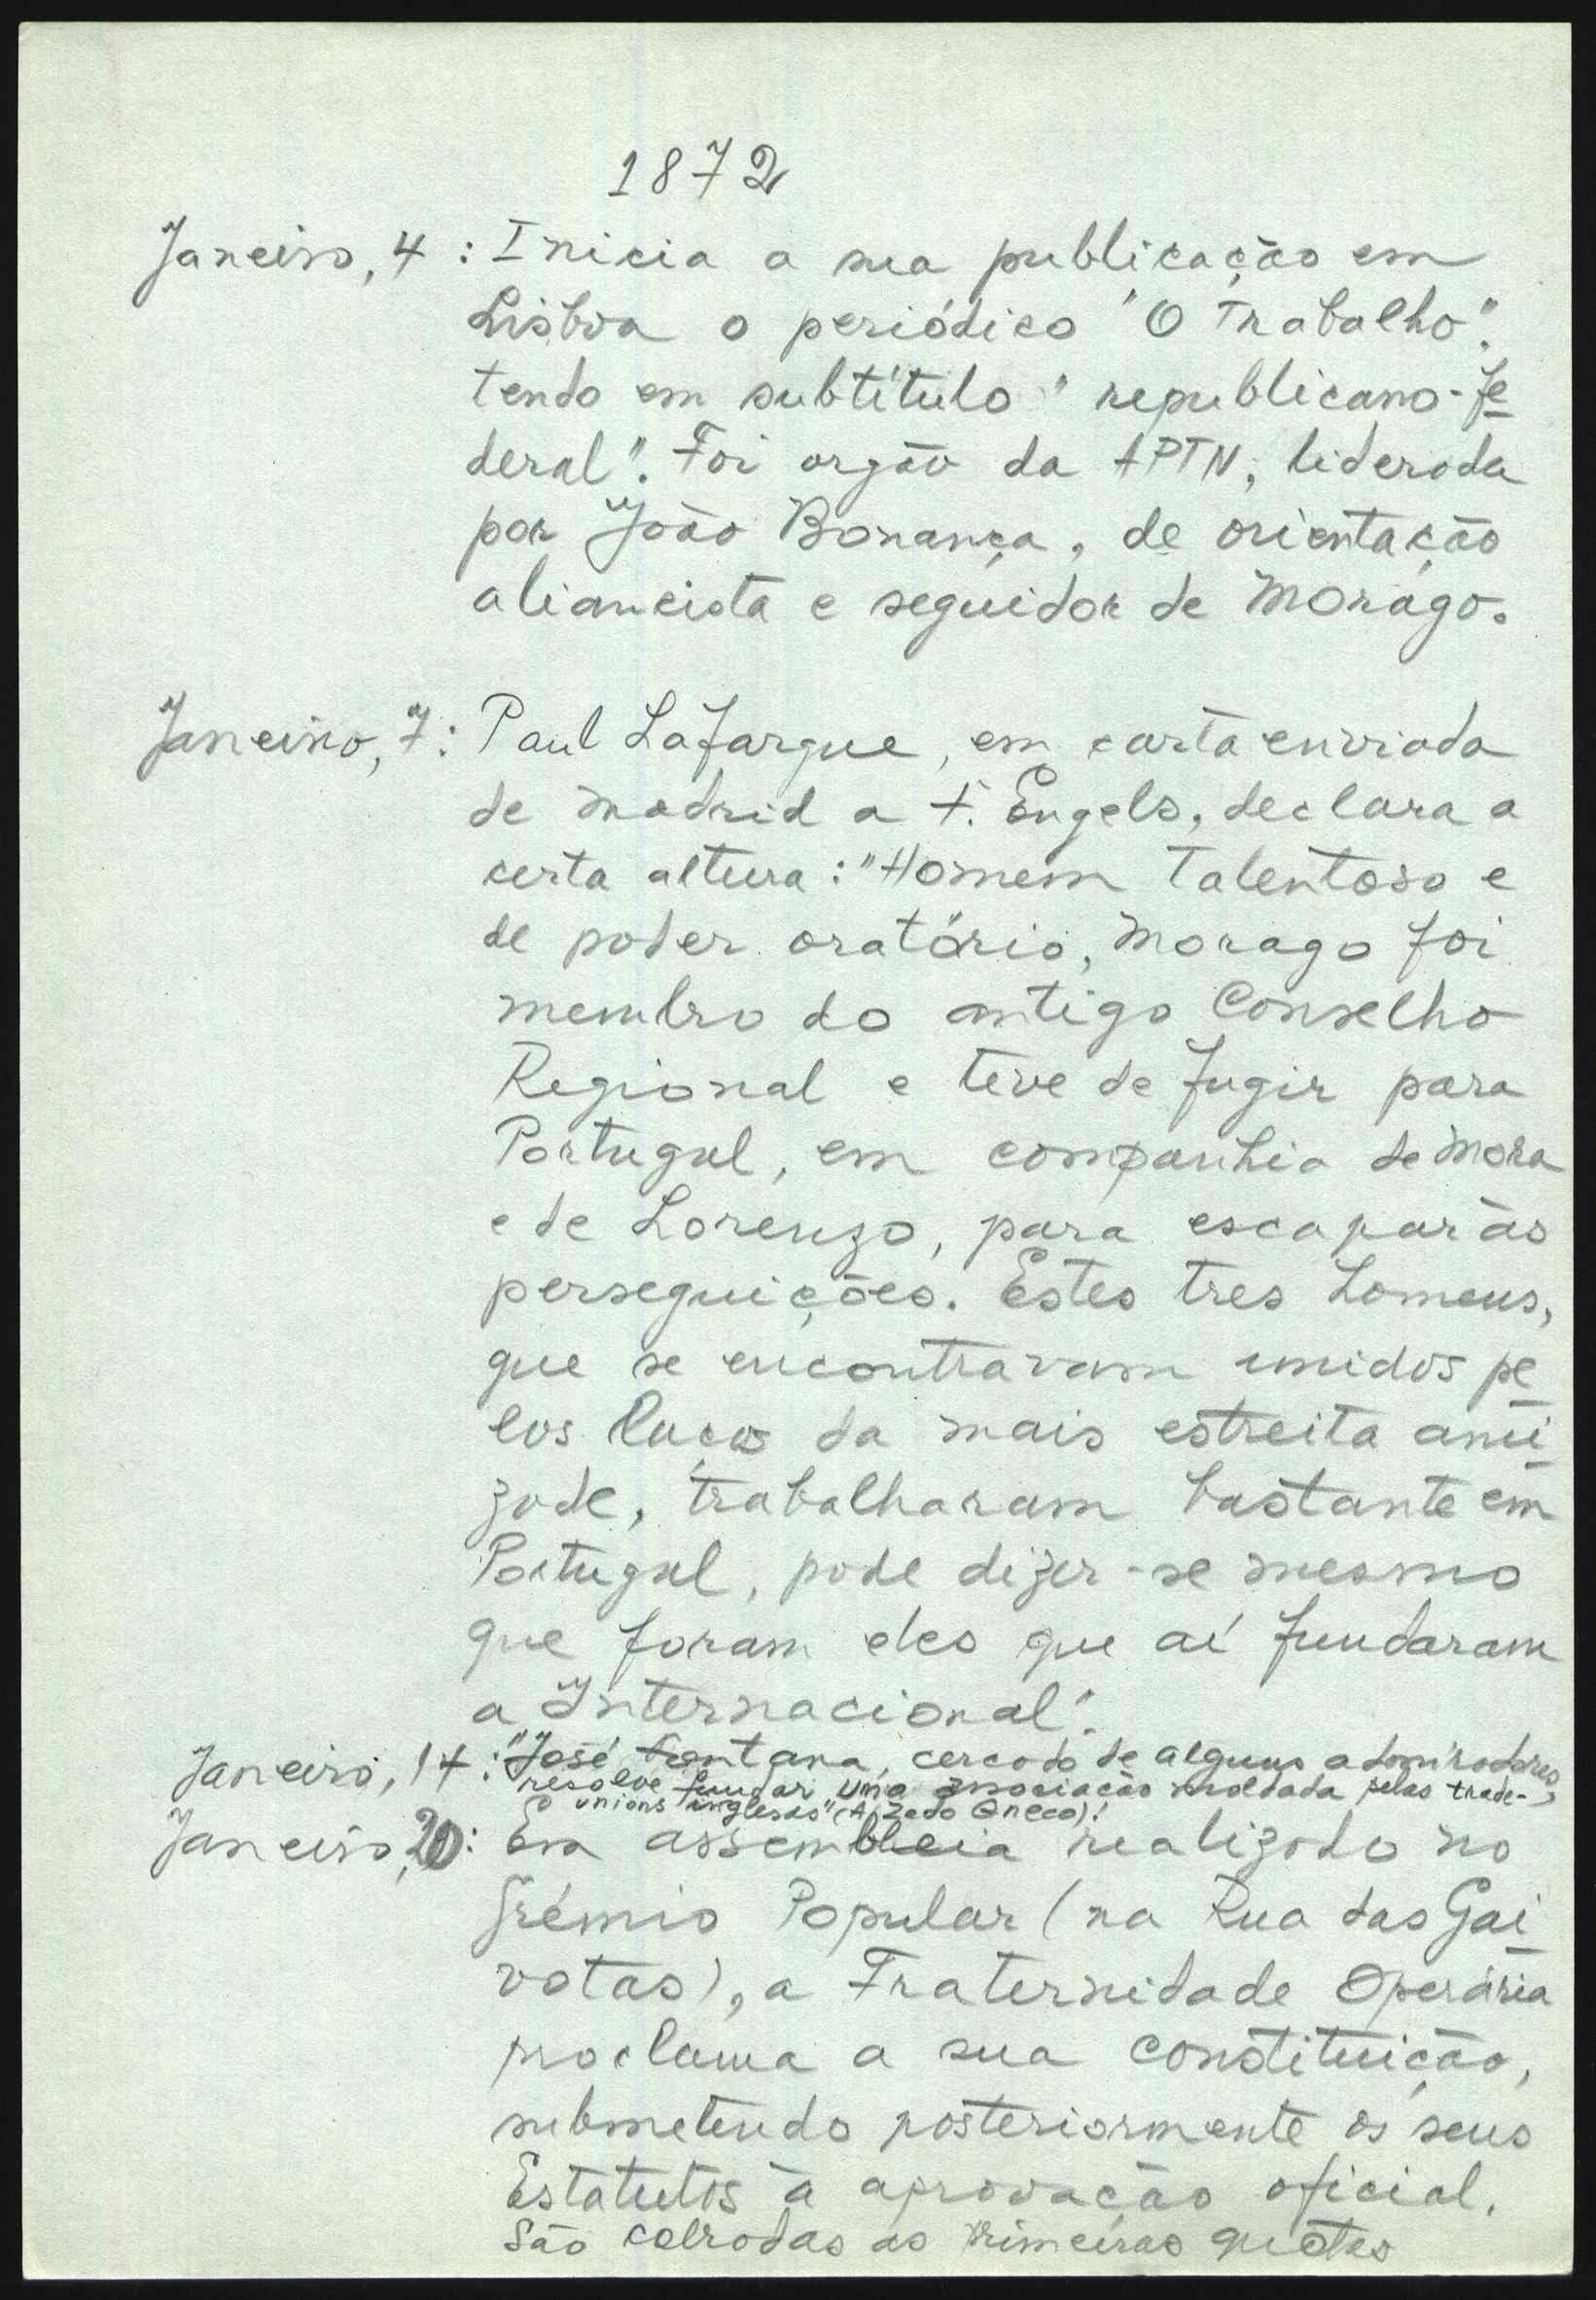 1872
Janeiro, 4 : Inicia a sua publicação em
Lisboa o periódico "O Trabalho",
tendo em subtítulo "republicano-fe
deral". Foi orgão da APTN, liderada
por João Bonança, de orientação
aliancista e seguidor de Morago.
Janeiro, 7 : Paul Lafargue, em carta enviada
de Madrid a F. Engels, declara a
certa altura : "Homem talentoso e
de poder oratório, Morago foi
membro do antigo Conselho
Regional e teve de fugir para
Portugal, em companhia de Mora
e de Lorenzo, para escapar às
perseguições. Estes tres homens,
que se encontravam unidos pe
los laços da mais estreita ami
zade, trabalharam bastante em
Portugal, pode dizer-se mesmo
que foram eles que aí fundaram
a Internacional".
Janeiro, 14 : "José Fontana, cercado de alguns admiradores,
resolve fundar uma associação moldada pelas trade-
unions inglesas" (Azedo Gneco)!
Janeiro, 20 : Em assembleia realizada no
Grémio Popular (na Rua das Gai
votas), a Fraternidade Operária
proclama a sua constituição,
submetendo posteriormente os seus
Estatutos à aprovação oficial.
São cobradas as primeiras quotas